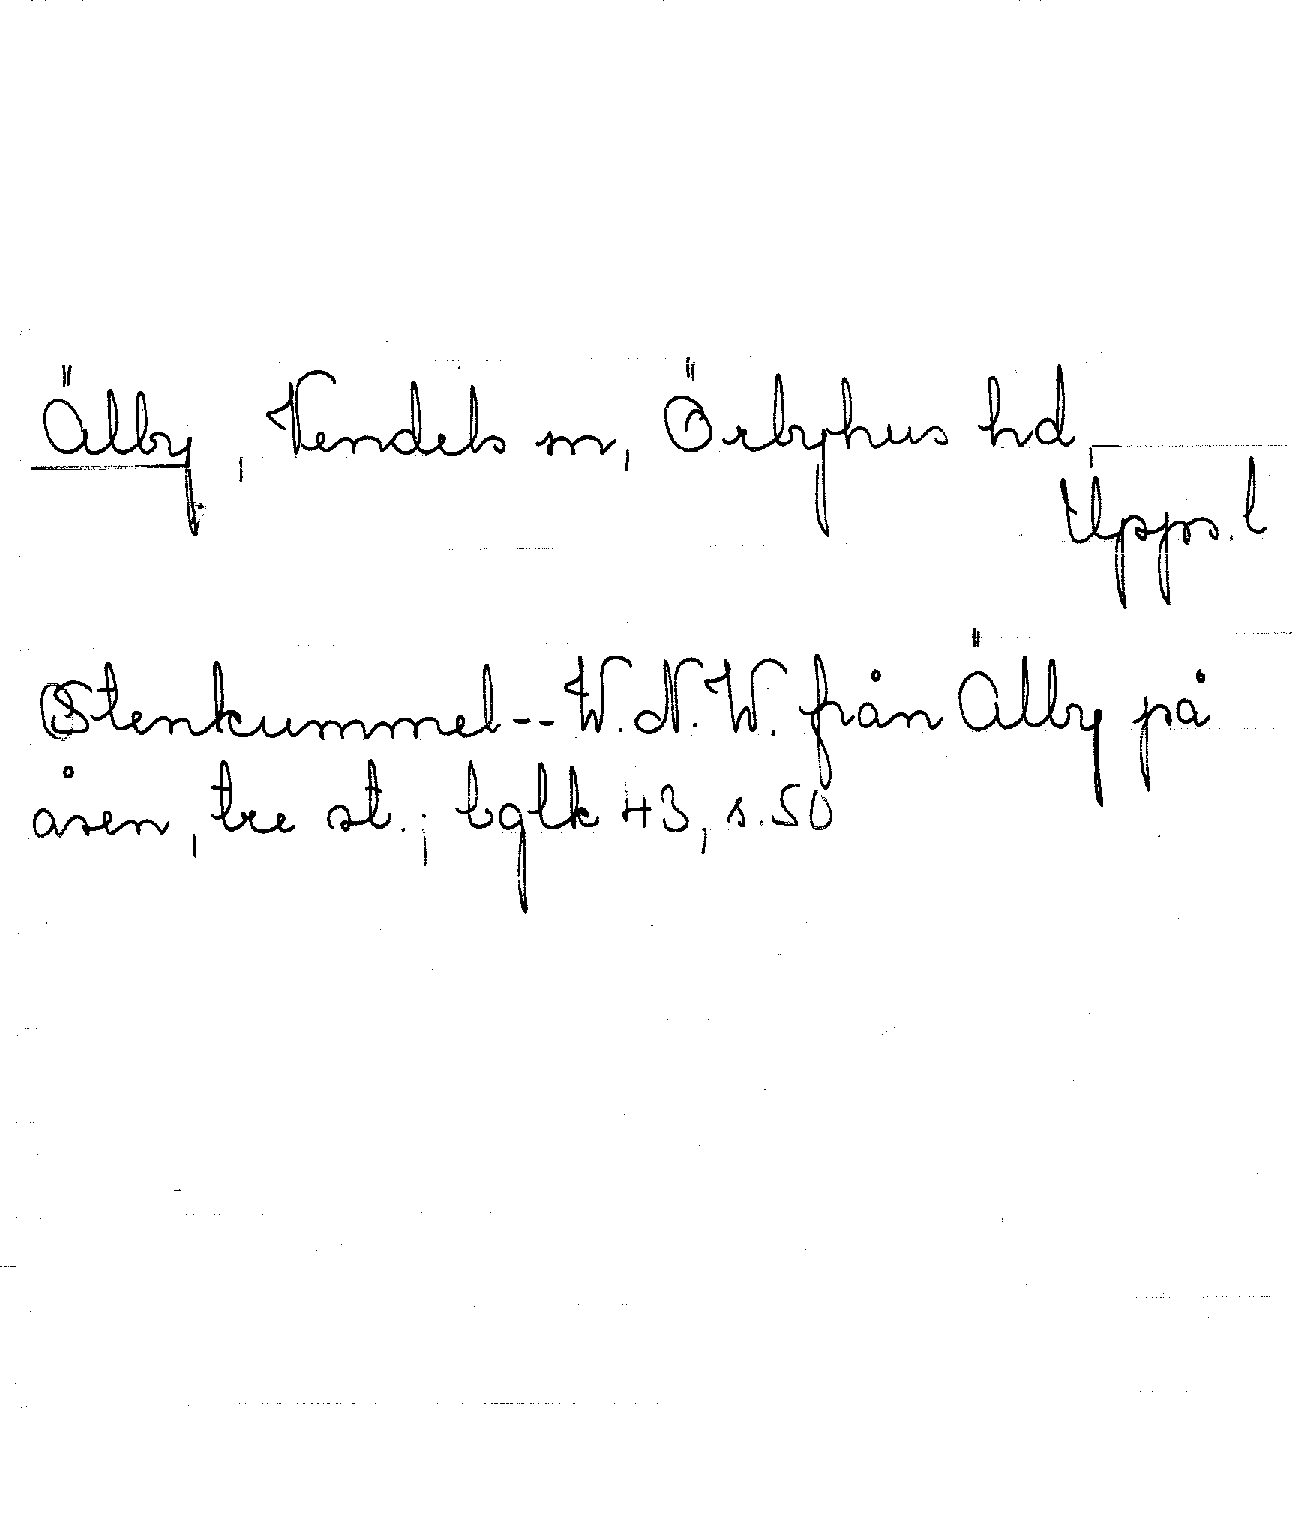 Älby, Vendels sn, Örbyhus hd,
Upps. l
Stenkummel -- W.N.W. från Älby på
åsen, tre st.; bglk 43, s. 50